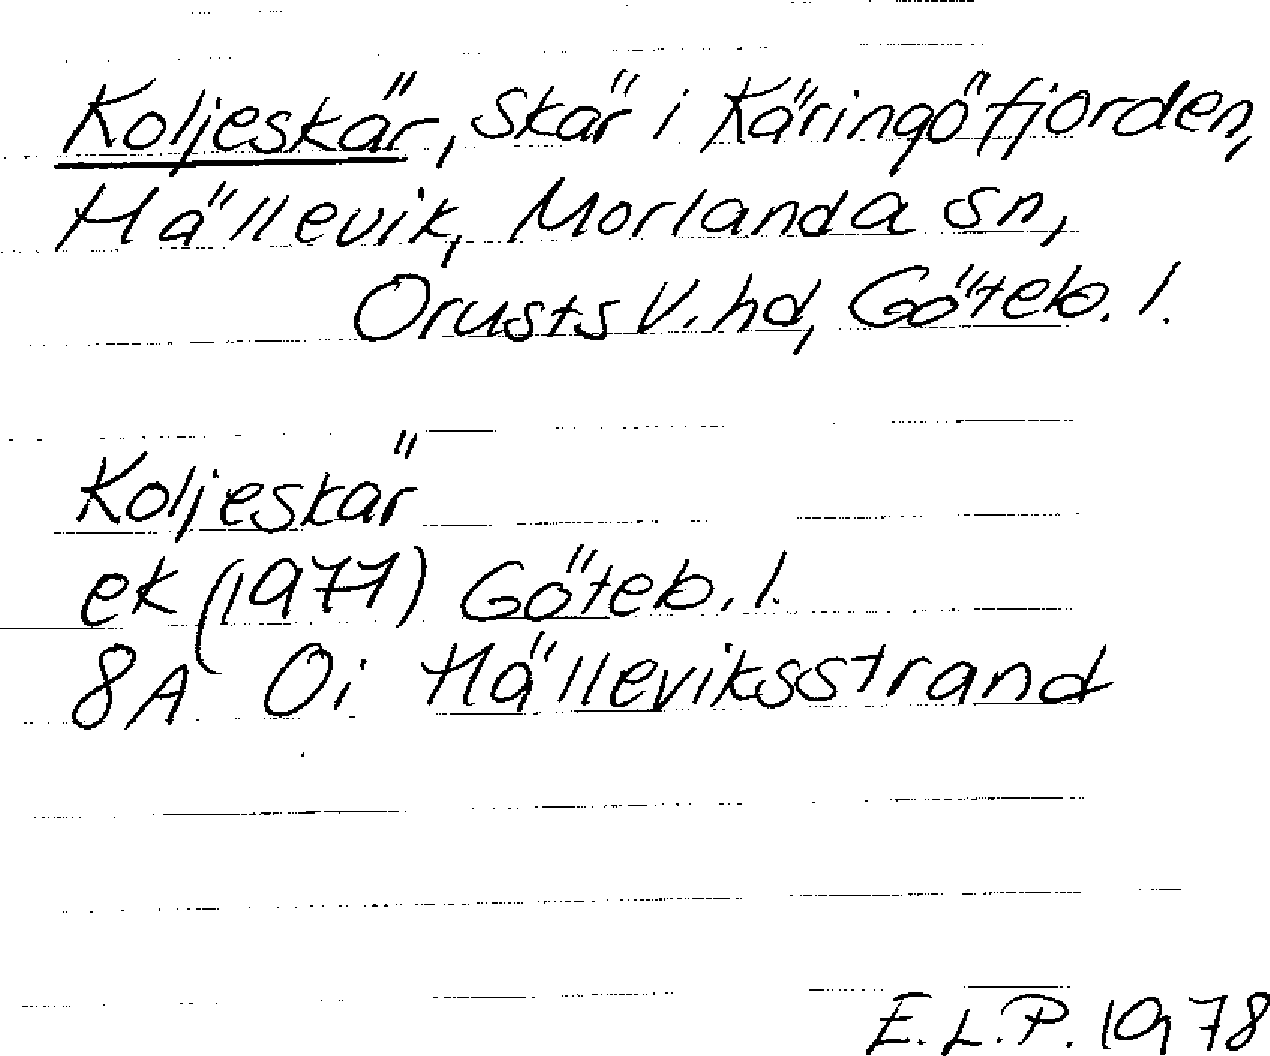 Koljeskär, skär i Käringöfjorden,
Hällevik, Morlanda sn,
Orusts V. hd, Göteb. l.
Koljeskär
ek (1977) Göteb. l.
8A 0i Hälleviksstrand
E.L.P. 1978